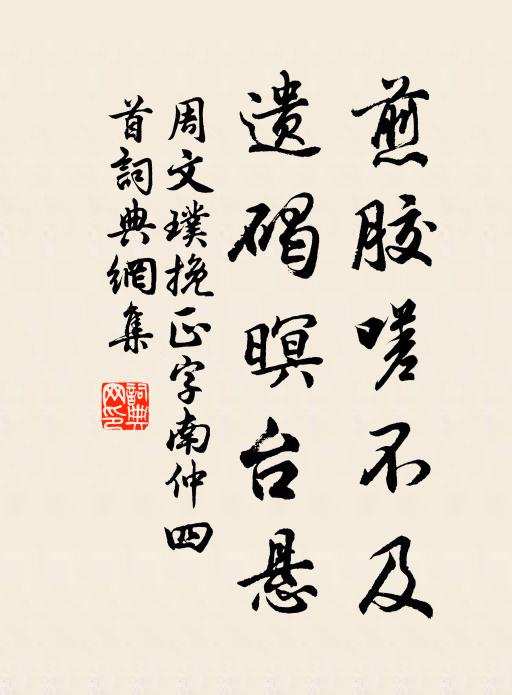 煎胶嗟不及
遗碣暝台悬
周文璞挽正字南仲四
首詞典網集
詞典
网印